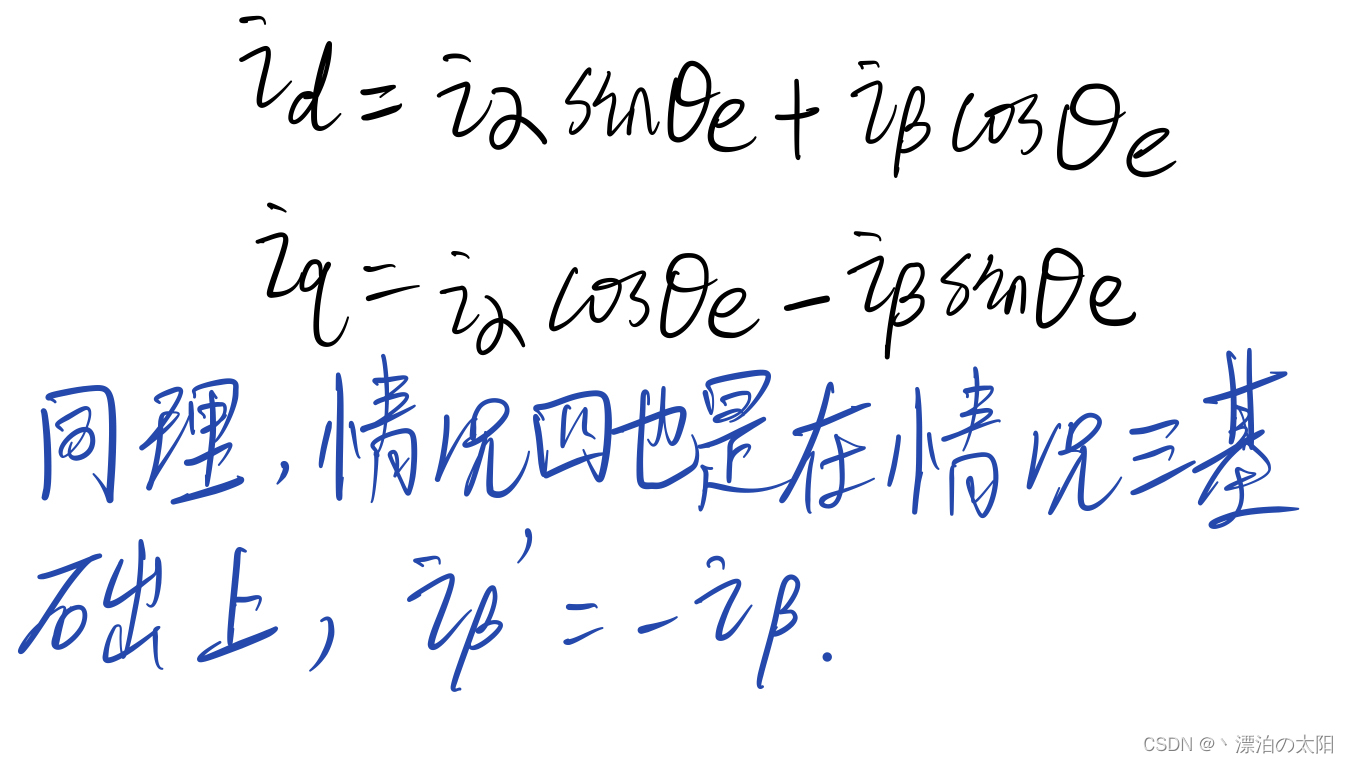 i_d = i_α sinθe + i_β cosθe
i_q = i_α cosθe - i_β sinθe
同理，情况四也是在情况三基
础上，i_β' = -i_β.
CSDN @丶漂泊の太阳